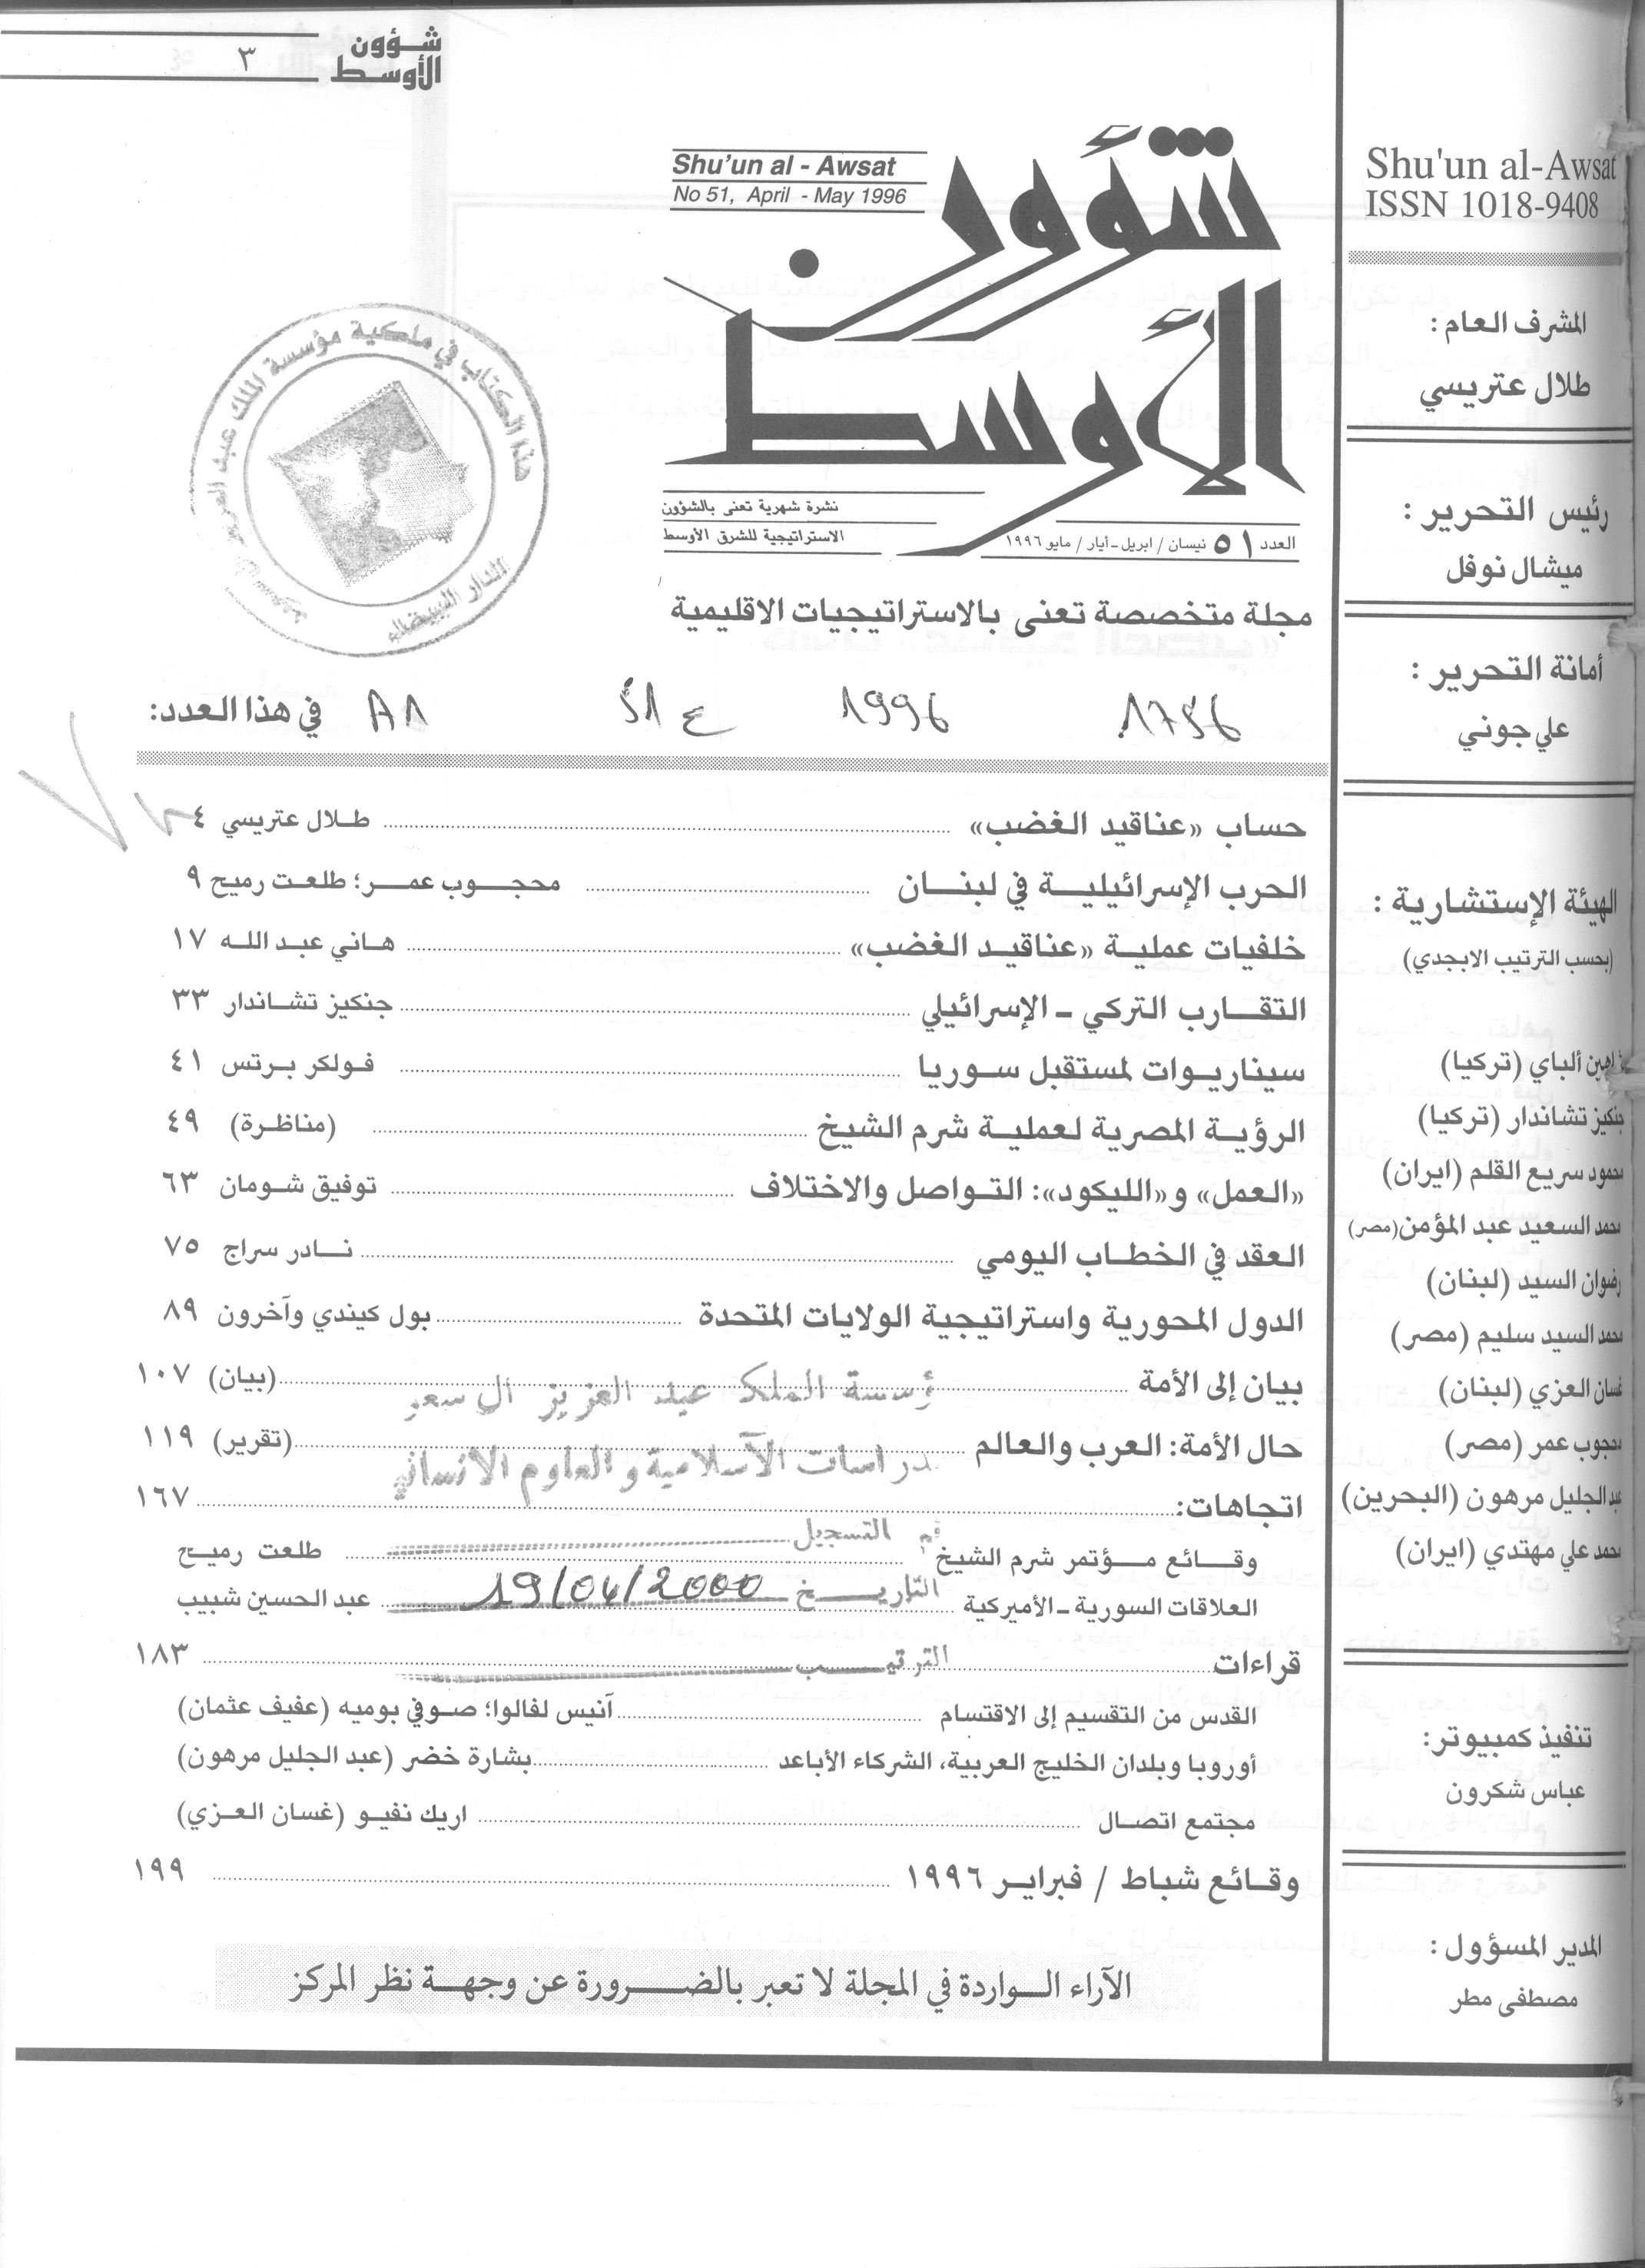 شؤون
الأوسط
٣
Shu'un al-Awsat
ISSN 1018-9408
المشرف العام :
طلال عتريسي
رئيس التحرير :
ميشال نوفل
أمانة التحرير :
علي جوني
الهيئة الإستشارية :
(بحسب الترتيب الابجدي)
ألباي (تركيا)
جنكيز تشاندار (تركيا)
محمود سريع القلم (ايران)
محمد السعيد عبد المؤمن (مصر)
رضوان السيد (لبنان)
محمد السيد سليم (مصر)
غسان العزي (لبنان)
محجوب عمر (مصر)
عبد الجليل مرهون (البحرين)
محمد علي مهتدي (ايران)
تنفيذ كمبيوتر:
عباس شكرون
المدير المسؤول :
مصطفى مطر
Shu'un al - Awsat
No 51, April - May 1996
شؤون
الأوسط
نشرة شهرية تعنى بالشؤون
الاستراتيجية للشرق الأوسط
العدد ٥١ نيسان / ابريل - أيار / مايو ١٩٩٦
هذا الكتاب في ملكية مؤسسة الملك عبد العزيز
الدار البيضاء
مجلة متخصصة تعنى بالاستراتيجيات الاقليمية
1756 1996 ع 51 A1
في هذا العدد:
حساب «عناقيد الغضب» ........ طلال عتريسي ٤
الحرب الإسرائيلية في لبنان ........ محجوب عمر؛ طلعت رميح ٩
خلفيات عملية «عناقيد الغضب» ........ هاني عبد الله ١٧
التقارب التركي - الإسرائيلي ........ جنكيز تشاندار ٣٣
سيناريوات لمستقبل سوريا ........ فولكر برتس ٤١
الرؤية المصرية لعملية شرم الشيخ ........ (مناظرة) ٤٩
«العمل» و«الليكود»: التواصل والاختلاف ........ توفيق شومان ٦٣
العقد في الخطاب اليومي ........ نادر سراج ٧٥
الدول المحورية واستراتيجية الولايات المتحدة ........ بول كيندي وآخرون ٨٩
بيان إلى الأمة ........ (بيان) ١٠٧
ؤسسة الملك عبد العزيز آل سعو
حال الأمة: العرب والعالم ........ (تقرير) ١١٩
دراسات الآسلامية و العلوم الانساني
اتجاهات: ........ ١٦٧
التسجيل
وقائع مؤتمر شرم الشيخ ........ طلعت رميح
التاريخ 19/04/2000
العلاقات السورية - الأميركية ........ عبد الحسين شبيب
الترتيب
قراءات ........ ١٨٣
القدس من التقسيم إلى الاقتسام ........ آنيس لفالوا؛ صوفي بوميه (عفيف عثمان)
أوروبا وبلدان الخليج العربية، الشركاء الأباعد ........ بشارة خضر (عبد الجليل مرهون)
مجتمع اتصال ........ اريك نفيو (غسان العزي)
وقائع شباط / فبراير ١٩٩٦ ........ ١٩٩
الآراء الواردة في المجلة لا تعبر بالضرورة عن وجهة نظر المركز